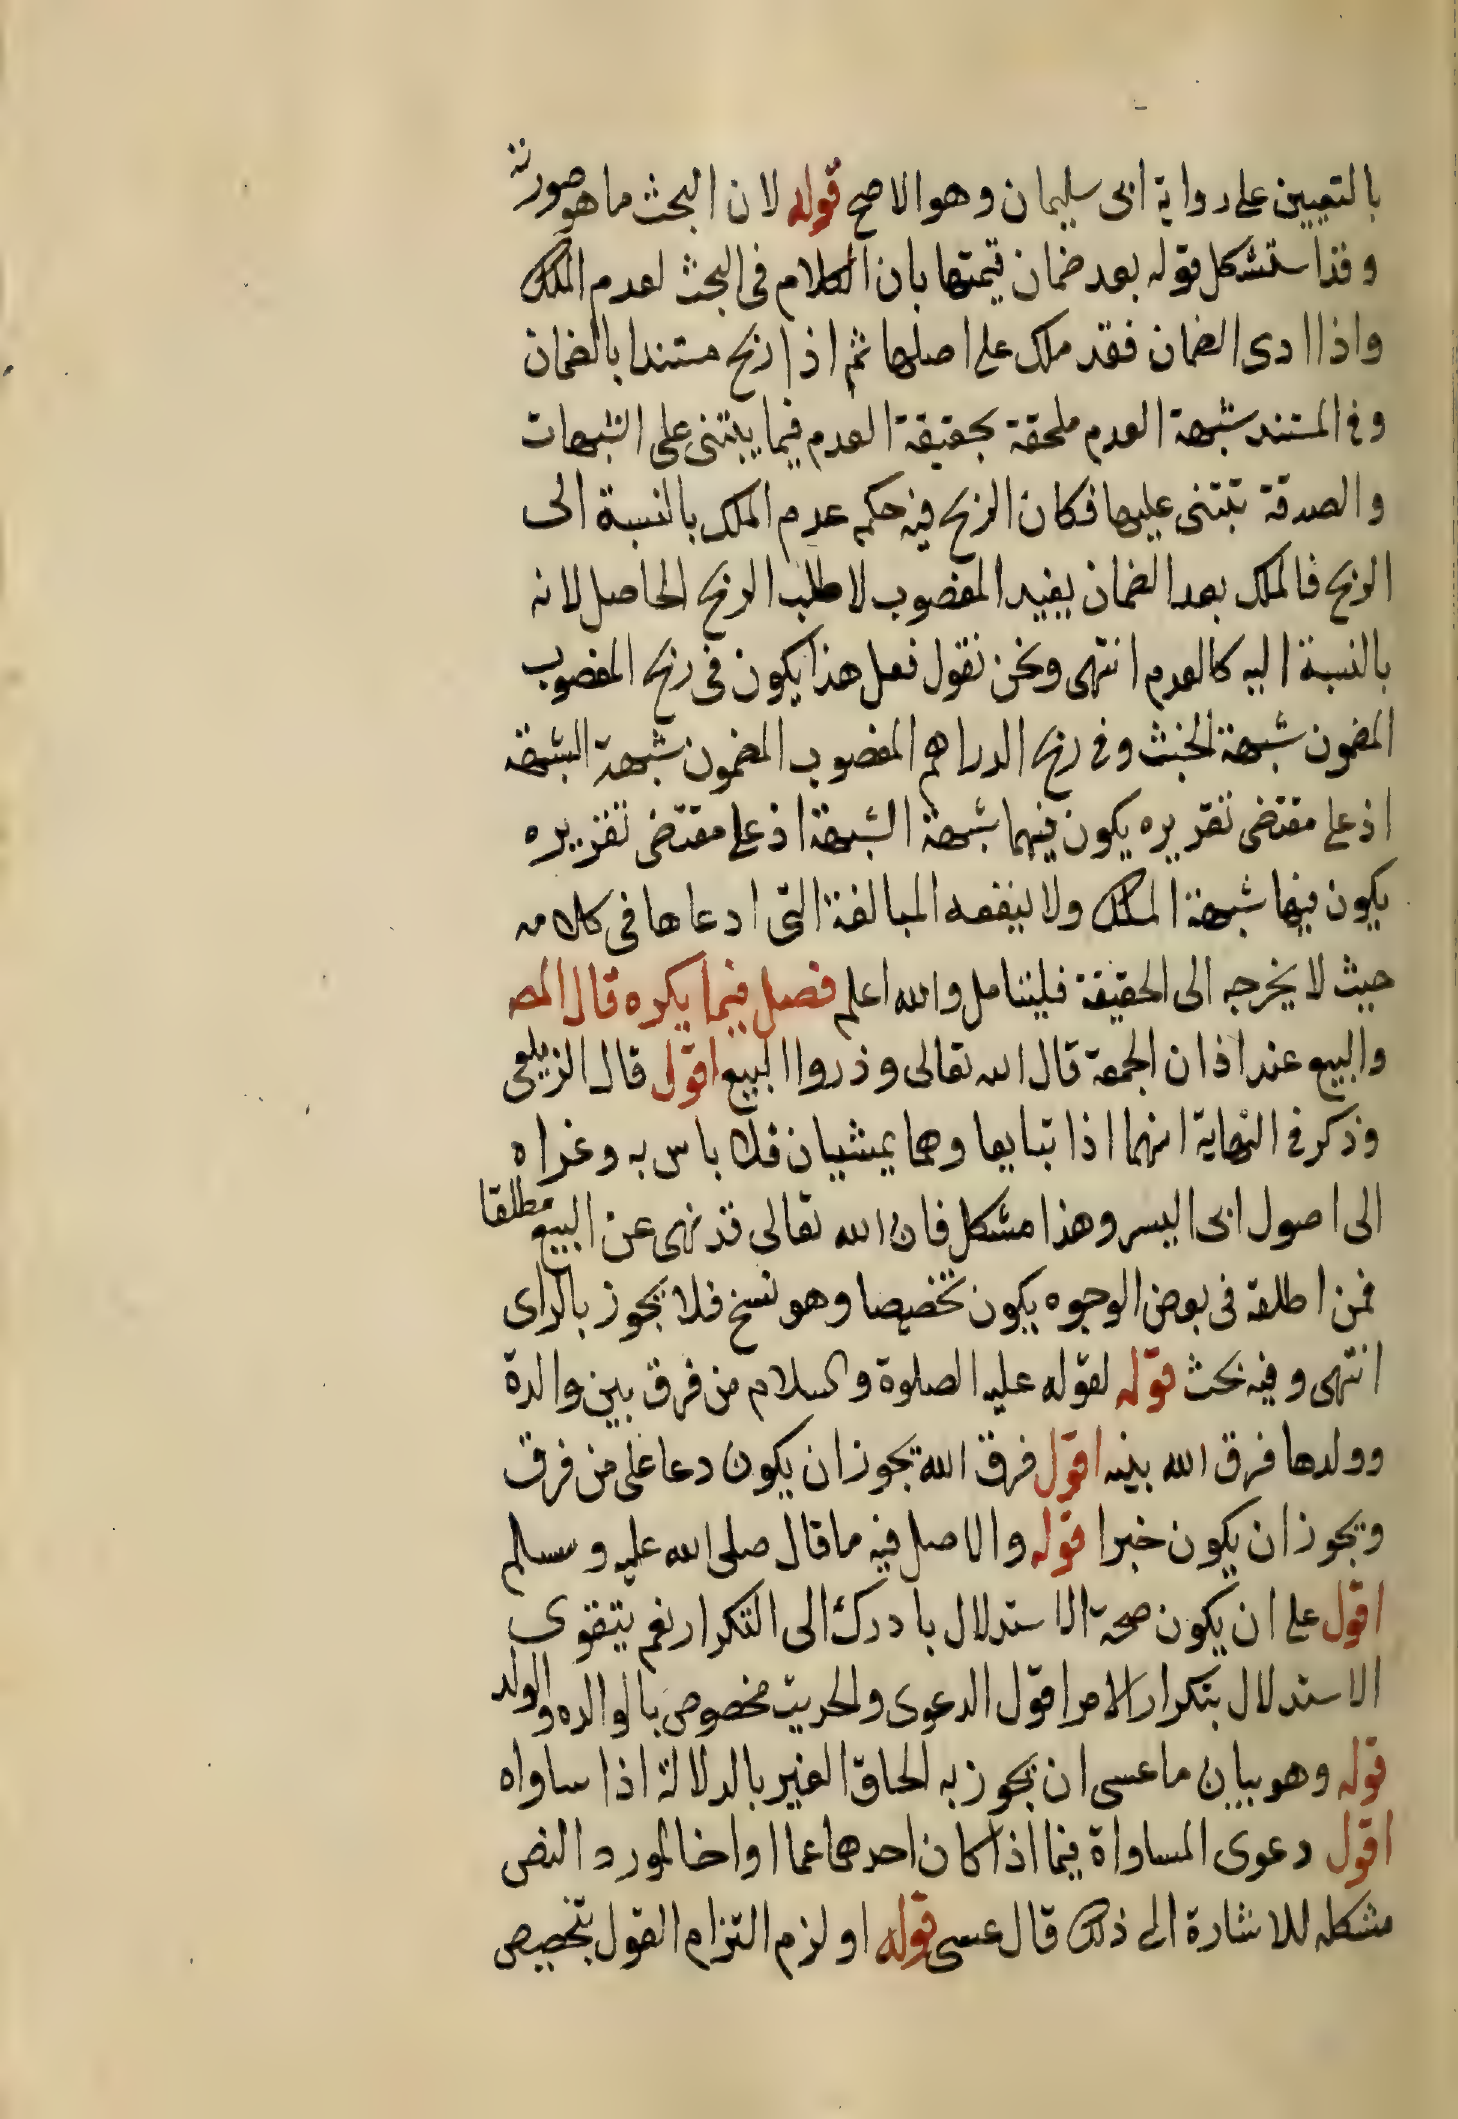 بالتعيين على رواية ابى سليمان وهو الاصح قوله لان البحث ما هو صورته
وقد استشكل قوله بعد ضمان قيمتها بان الكلام فى البحث لعدم الملك
واذا ادى الضمان فقد ملك على اصلها ثم اذا ربح مستندا بالضمان
وفى المستند شبهة العدم ملحقة بحقيقة العدم فيما يبتنى على الشبهات
والصدقة تبتنى عليها فكان الربح فيه حكم عدم الملك بالنسبة الى
الربح فالملك بعد الضمان يفيد المغصوب لا طلب الربح الحاصل لانه
بالنسبة اليه كالعدم انتهى ونحن نقول فعل هذا يكون فى ربح المغصوب
المضمون شبهة الخبث وفى ربح الدراهم المغصوب المضمون شبهة الشبهة
اذ على مقتضى تقريره يكون فيهما شبهة الشبهة اذ على مقتضى تقريره
يكون فيها شبهة الملك ولا ينفعه المبالغة التى ادعاها فى كلامه
حيث لا يخرجه الى الحقيقة فليتامل والله اعلم فصل فيما يكره قال المص
والبيع عند اذان الجمعة قال الله تعالى وذروا البيع اقول قال الزيلعى
وذكر فى النهاية انهما اذا تبايعا وهما يمشيان فلا باس به وعزاه
الى اصول ابى اليسر وهذا مشكل فان الله تعالى قد نهى عن البيع مطلقا
فمن اطلقه فى بعض الوجوه يكون تخصيصا وهو نسخ فلا يجوز بالراى
انتهى وفيه بحث قوله لقوله عليه الصلوة والسلام من فرق بين والدة
وولدها فرق الله بينه اقول فرق الله يجوز ان يكون دعا على من فرق
ويجوز ان يكون خبرا قوله والاصل فيه ما قال صلى الله عليه وسلم
اقول على ان يكون صحة الاستدلال بادرك الى التكرار نعم يتقوى
الاستدلال بتكرار الامر اقول الدعوى والحديث مخصوص بالوالده والولد
قوله وهو بيان ما عسى ان يجوز به الحاق الغير بالدلالة اذا ساواه
اقول دعوى المساواة فيما اذا كان احدهما عما او اخا لمورد النص
مشكله للاشارة الى ذلك قال عسى قوله او لزم التزام القول بتخصيص